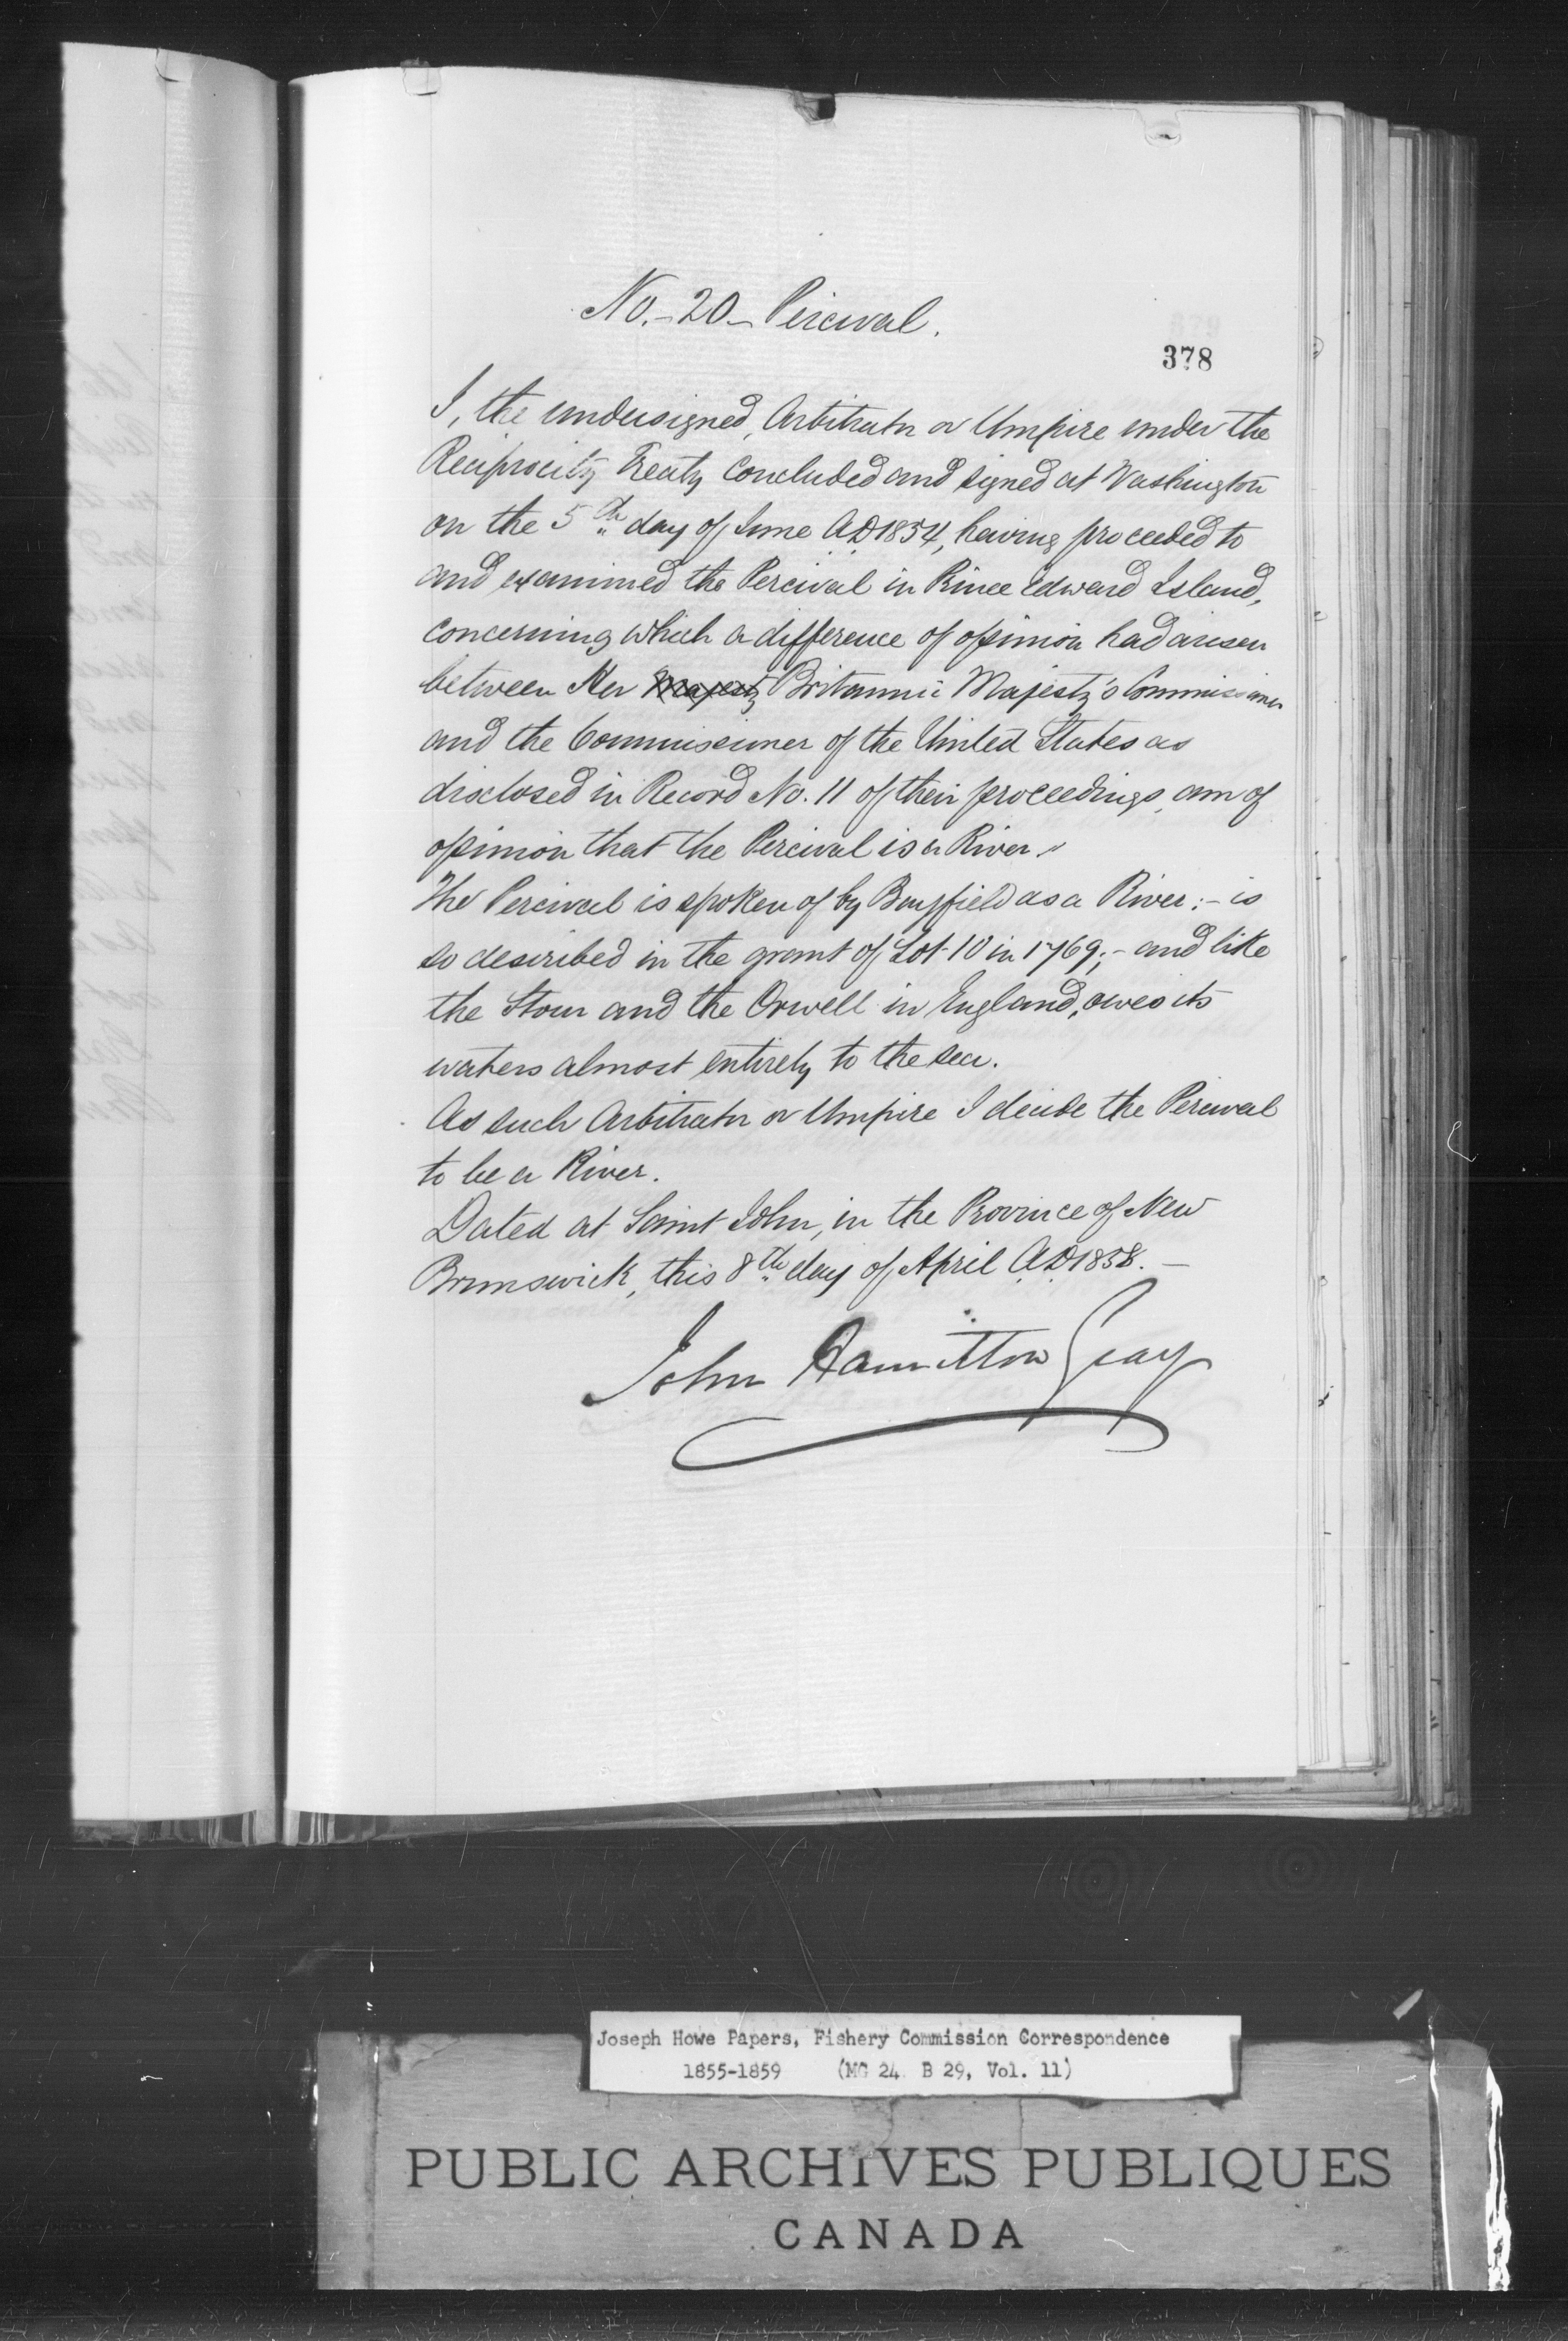 No. - 20 - Percival.
378
I, the undersigned, Arbitrator or Umpire under the
Reciprocity Treaty Concluded and signed at Washington
on the 5th day of June A.D. 1854, having proceeded to
and examined the Percival in Prince Edward Island,
concerning which a difference of opinion had arisen
between Her Majesty Britannic Majesty's Commissioner
and the Commissioner of the United States as
disclosed in Record No. 11 of their proceedings, am of
opinion that the Percival is a River.
The Percival is spoken of by Bayfield as a River: - is
so described in the grant of Lot 10 in 1769; - and like
the Stour and the Orwell in England, owes its
waters almost entirely to the sea.
As such Arbitrator or Umpire I decide the Percival
to be a River.
Dated at Saint John, in the Province of New
Brunswick, this 8th day of April A.D. 1858. -
John Hamilton Gray
Joseph Howe Papers, Fishery Commission Correspondence
1855-1859 (MG 24 B 29, Vol. 11)
PUBLIC ARCHIVES PUBLIQUES
CANADA